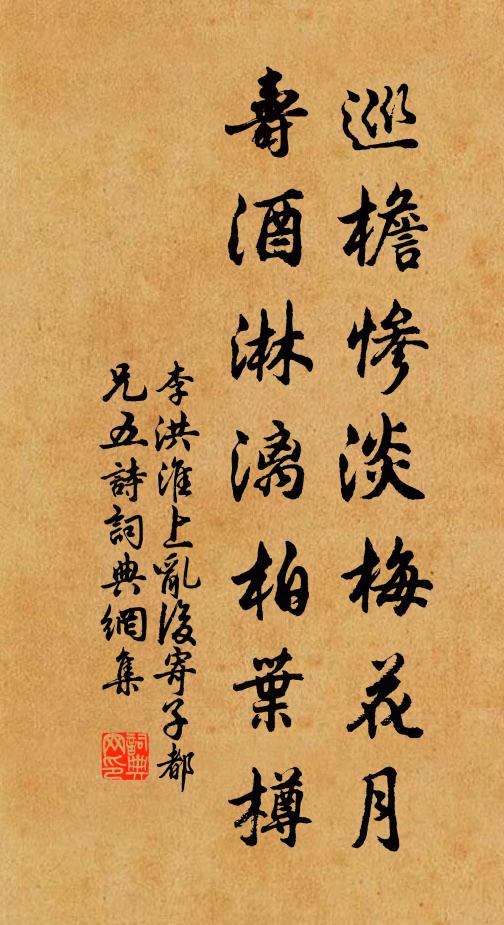 巡檐慘淡梅花月
壽酒淋漓柏葉樽
李洪淮上亂後寄子都
兄五詩詞典網集
詞典
网印